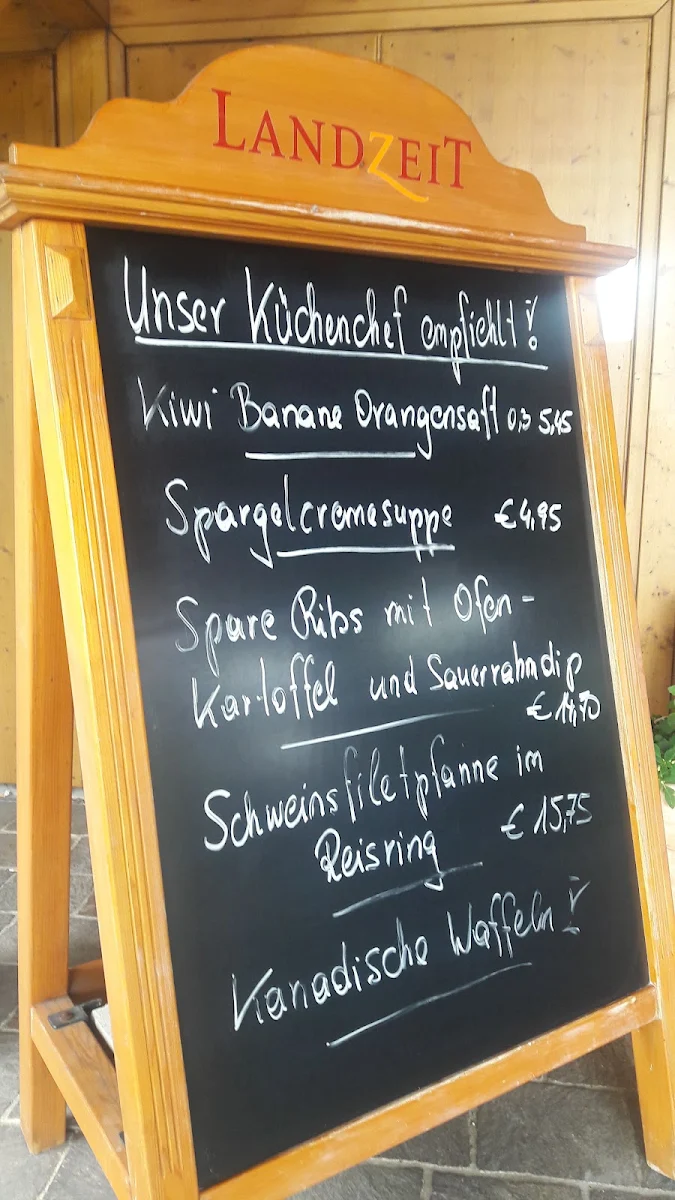 LANDZEIT
Unser Küchenchef empfiehlt!
Kiwi Banane Orangensaft 0,3 5,45
Spargelcremesuppe € 4,95
Spare Ribs mit Ofen-
Kartoffel und Sauerrahmdip
€ 14,70
Schweinsfiletpfanne im
Reisring € 15,75
Kanadische Waffeln!